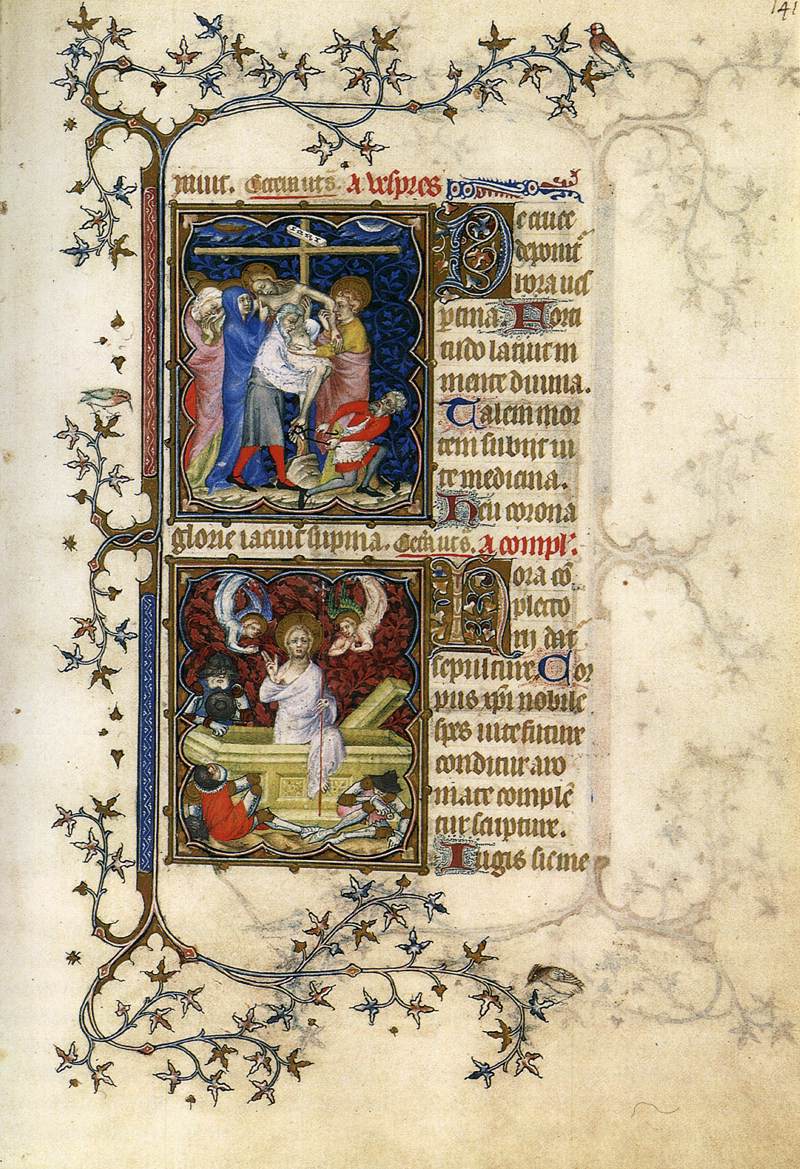 141
A vespres
De cruce
deponit᷑
hora ues
ꝑtina. Forti
tudo latuit in
mente diuina.
Talem mor
tem subijt ui
te medicina.
Heu corona
glorie iacuit supina. A compl᷑.
Hora cō
pleto
rij dat᷑
sepulture. Cor
pus xp̄i nobile
spes uite future
conditur aro
mate complē
tur scripture.
Iugis sit me